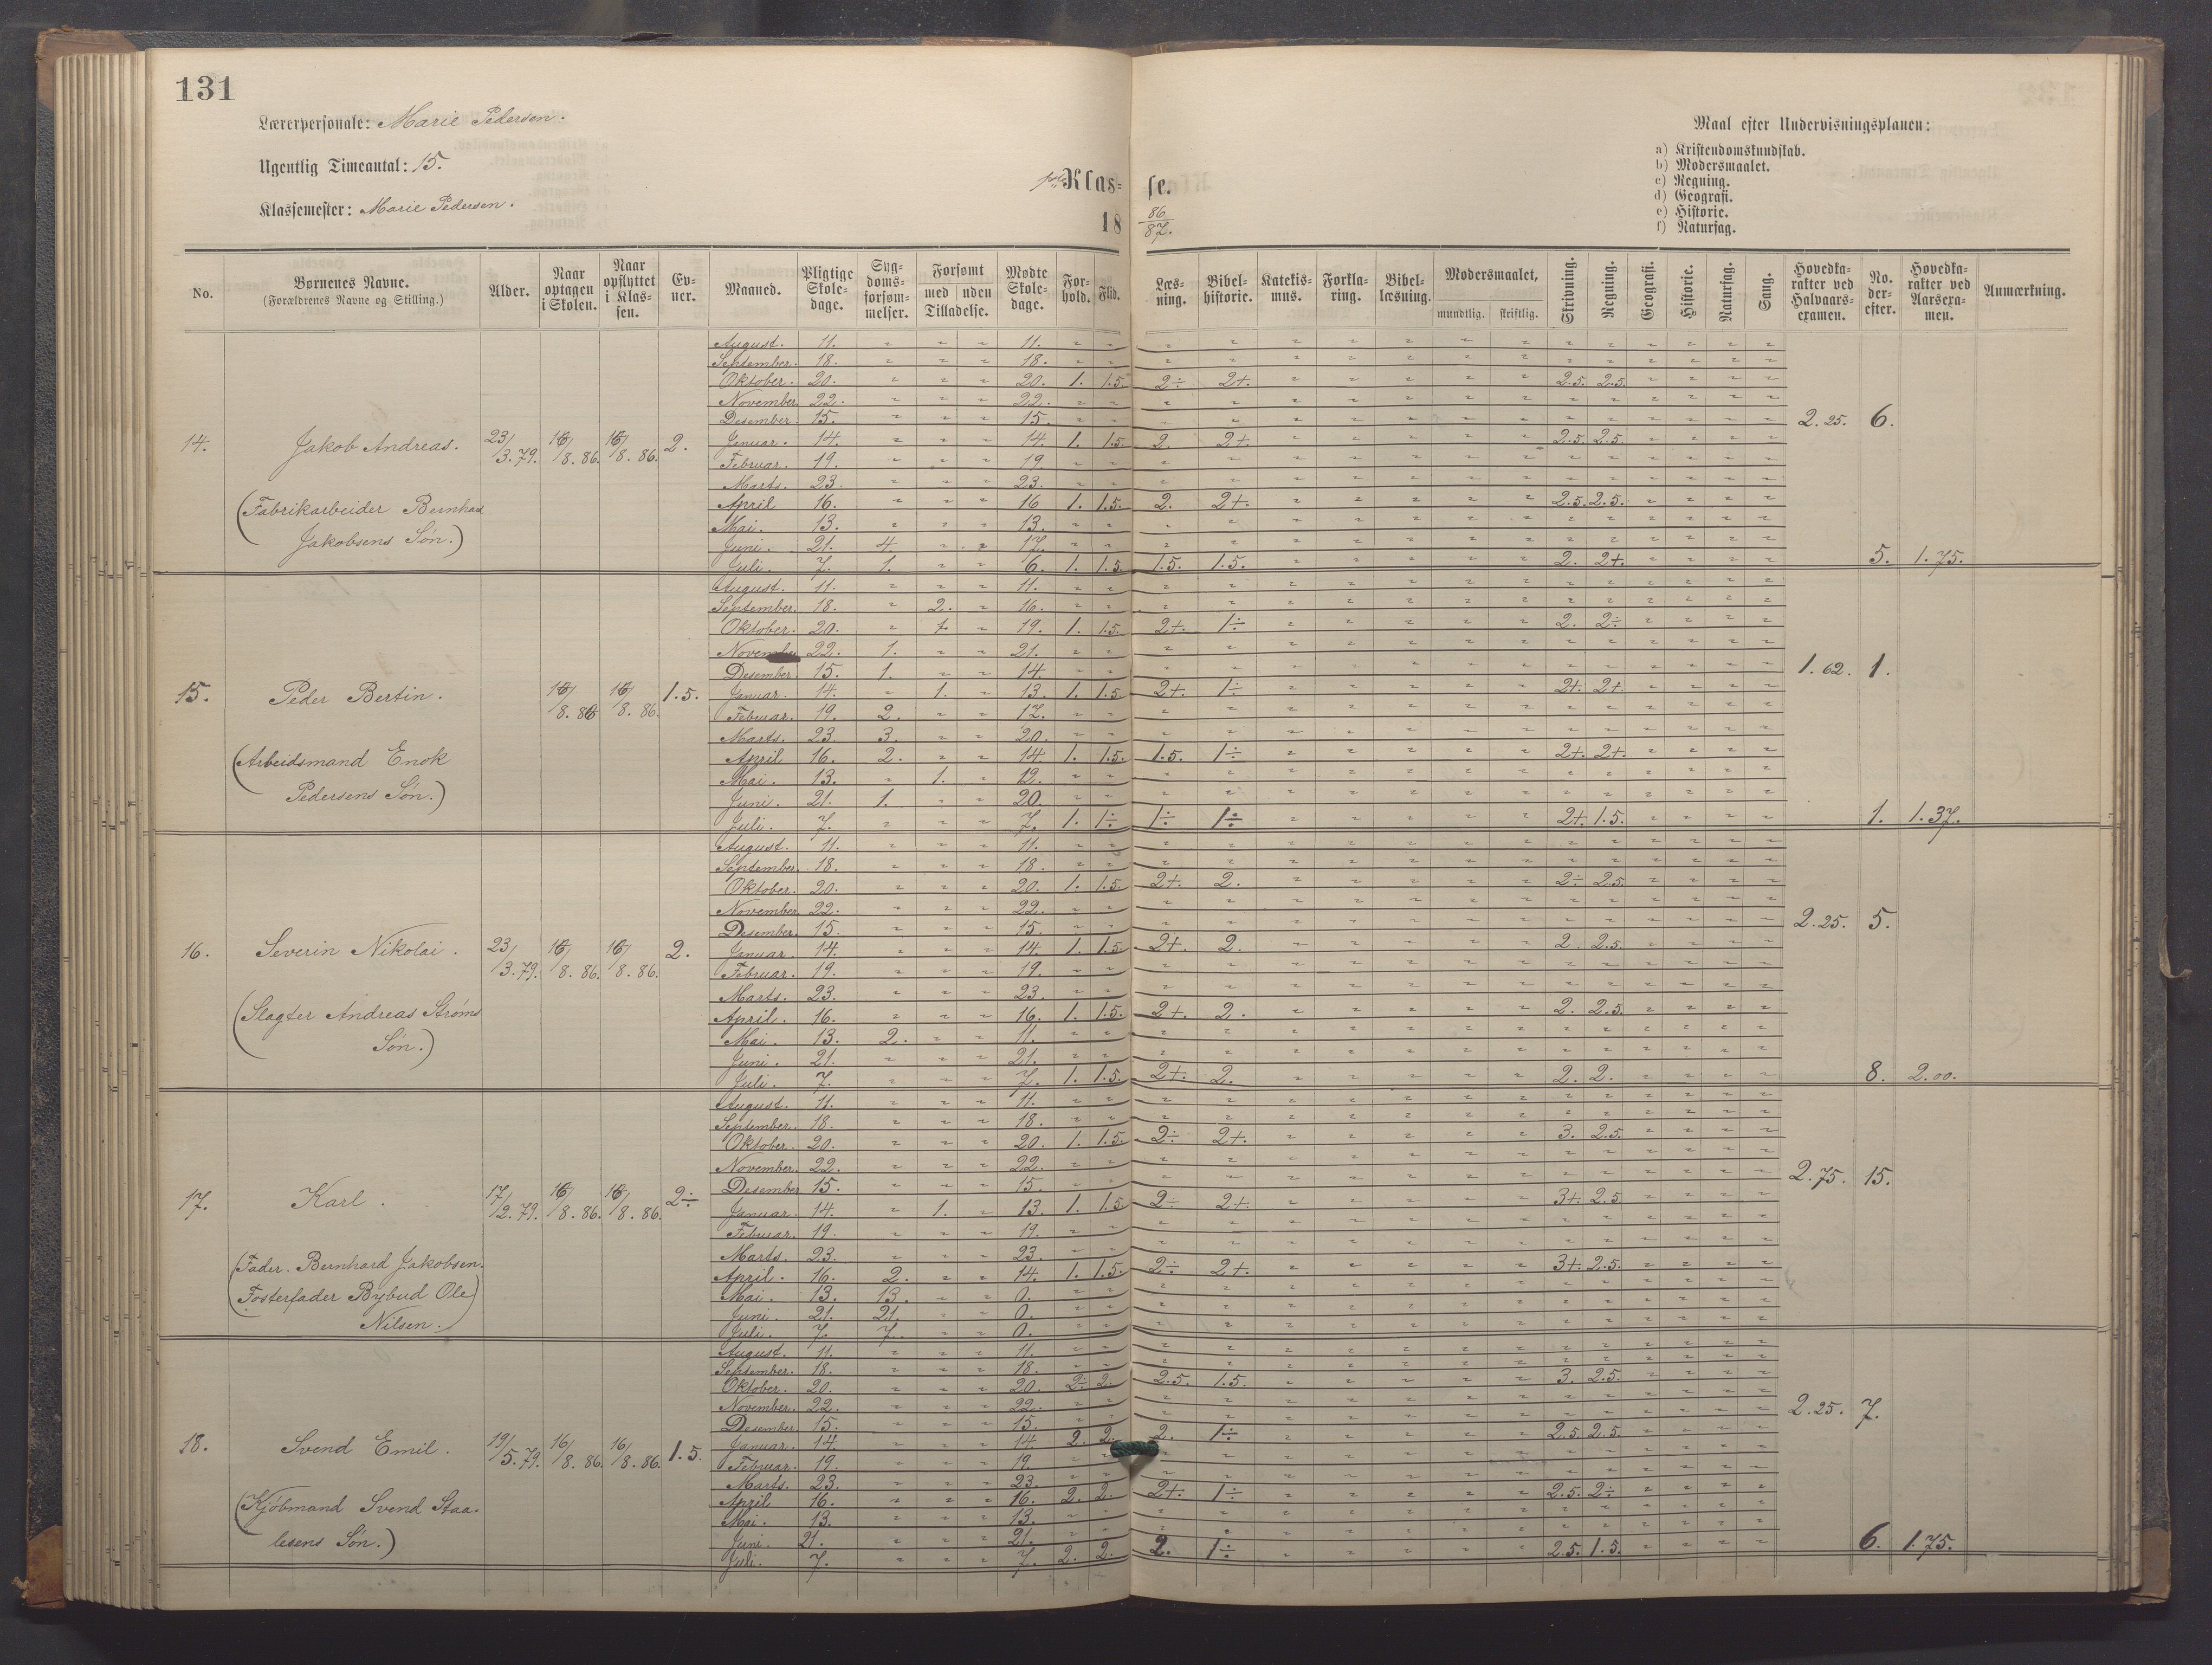 131
Lærerpersonale: Marie Pedersen.
Ugentlig Timeantal: 15.
Klassemester: Marie Pedersen.
Klas- se.
18 86/87.
Maal efter Undervisningsplanen:
a) Kristendomskundskab.
b) Modersmaalet.
c) Regning.
d) Geografi.
e) Historie.
f) Naturfag.
No. Børnenes Navne. (Forældrenes Navne og Stilling.) Alder. Naar optagen i Skolen. Naar opflyttet i Klassen. Evner. Maaned. Pligtige Skoledage. Sygdomsforsømmelser. Forsømt med uden Tilladelse. Mødte Skoledage. Forhold. Flid. Læsning. Bibelhistorie. Katekismus. Forklaring. Bibellæsning. Modersmaalet, mundtlig. skriftlig. Skrivning. Regning. Geografi. Historie. Naturfag. Sang. Hovedkarakter ved Halvaarsexamen. No. derefter. Hovedkarakter ved Aarsexamen. Anmærkning.
14. Jakob Andreas. 23/3.79. 16/8.86. 16/8.86. 2.
(Fabrikarbeider Bernhard
Jakobsens Søn.)
August. 11. " " " 11. " "
September. 18. " " " 18. " "
Oktober. 20. " " " 20. 1. 1.5. 2÷ 2+. 2.5. 2.5.
November. 22. " " " 22. " "
Desember. 15. " " " 15. " " 2.25. 6.
Januar. 14. " " " 14. 1. 1.5. 2. 2+. 2.5. 2.5.
Februar. 19. " " " 19. " "
Marts. 23. " " " 23. " "
April 16. " " " 16 1. 1.5. 2. 2+. 2.5. 2.5.
Mai. 13. " " " 13. " "
Juni. 21. 4. " " 17. " "
Juli. 7. 1. " " 6. 1. 1.5. 1.5. 1.5. 2. 2+. 5. 1.75.
15. Peder Bertin. 16/8.86 16/8.86. 1.5.
(Arbeidsmand Enok
Pedersens Søn.)
August. 11. " " " 11. " "
September. 18. " 2. " 16. " "
Oktober. 20. " 1. " 19. 1. 1.5. 2+. 1÷ 2. 2÷
November 22. 1. " " 21. " "
Desember. 15. 1. " " 14. " " 1.62. 1.
Januar. 14. " 1. " 13. 1. 1.5 2+. 1÷ 2+. 2+.
Februar. 19. 2. " " 17. " "
Marts. 23 3. " " 20. " "
April 16. 2. " " 14. 1. 1.5. 1.5. 1÷ 2+. 2+.
Mai. 13. " 1. " 12. " "
Juni. 21. 1. " " 20. " "
Juli. 7. " " " 7. 1. 1÷ 1÷ 1÷ 2+. 1.5. 1. 1.37.
16. Severin Nikolai. 23/3.79. 16/8.86. 16/8.86. 2.
(Slagter Andreas Strøms
Søn.)
August. 11. " " " 11. " "
September. 18. " " " 18. " "
Oktober. 20. " " " 20. 1. 1.5. 2+. 2. 2÷ 2.5.
November. 22. " " " 22. " "
Desember. 15. " " " 15. " " 2.25. 5.
Januar. 14. " " " 14. 1. 1.5 2+. 2. 2. 2.5.
Februar. 19. " " " 19. " "
Marts. 23. " " " 23. " "
April. 16. " " " 16. 1. 1.5. 2+. 2. 2. 2.5.
Mai. 13. 2. " " 11. " "
Juni. 21. " " " 21. " "
Juli. 7. " " " 7. 1. 1.5. 2+. 2. 2. 2. 8. 2.00.
17. Karl. 17/2.79. 16/8.86. 16/8.86. 2÷
(Fader. Bernhard Jakobsen.
Fosterfader Bybud Ole
Nilsen.)
August. 11. " " " 11. " "
September. 18. " " " 18. " "
Oktober. 20. " " " 20. 1. 1.5. 2÷ 2+. 3. 2.5.
November. 22. " " " 22. " "
Desember 15. " " " 15. " " 2.75. 15.
Januar. 14. " 1. " 13. 1. 1.5 2÷ 2+. 3+. 2.5
Februar. 19. " " " 19. " "
Marts. 23. " " " 23. " "
April. 16. 2. " " 14. 1. 1.5. 2÷ 2+. 3+. 2.5.
Mai. 13. 13. " " 0. " "
Juni. 21. 21. " " 0. " "
Juli. 7. 7. " " 0. " "
18. Svend Emil. 19/5.79. 16/8.86. 16/8.86. 1.5.
(Kjøbmand Svend Staa-
lesens Søn.)
August. 11. " " " 11. " "
September. 18. " " " 18. " "
Oktober. 20. " " " 20. 2÷ 2. 2.5. 1.5. 3. 2.5.
November. 22. " " " 22. " "
Desember. 15. " " " 15. " " 2.25. 7.
Januar. 14. " " " 14 2. 2. 2. 1÷ 2.5. 2.5.
Februar. 19. " " " 19. " "
Marts. 23. " " " 23. " "
April 16. " " " 16. 2. 2. 2+. 1÷ 2.5. 2÷
Mai. 13. " " " 13. " "
Juni. 21. " " " 21. " "
Juli. 7. " " " 7. 2. 2. 2. 1÷ 2.5. 1.5. 6. 1.75.